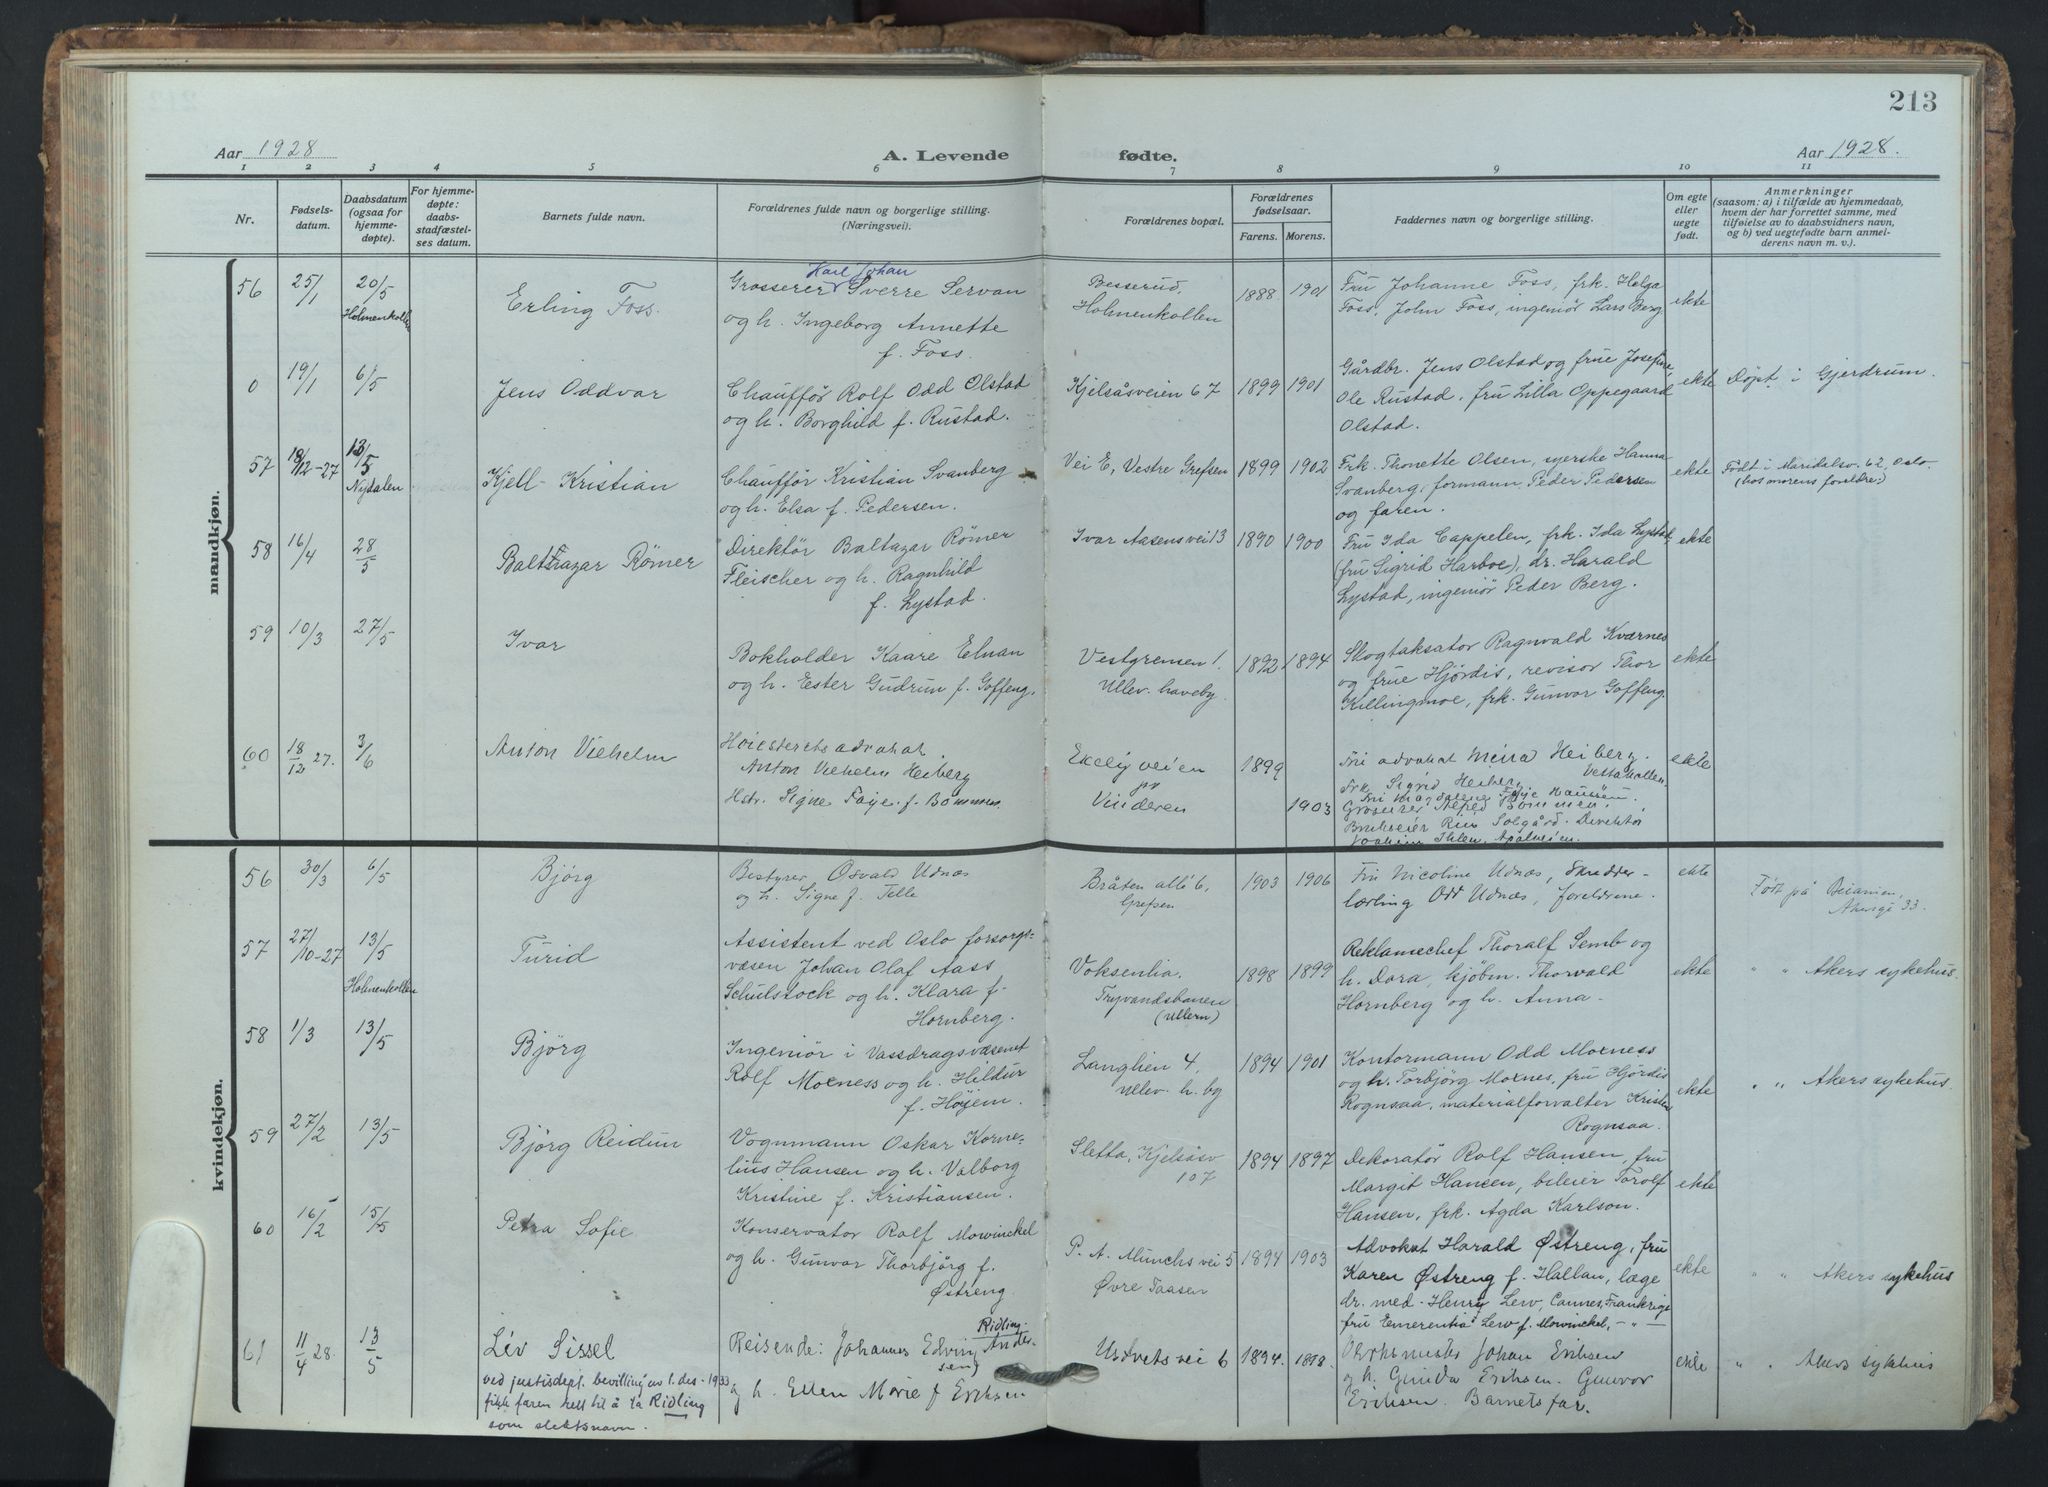 213
Aar 1928
A. Levende fødte.
Aar 1928.
1 2 3 4 5 6 7 8 9 10 11
Nr.
Fødsels-
datum.
Daabsdatum
(ogsaa for
hjemme-
døpte).
For hjemme-
døpte:
daabs-
stadfæstel-
ses datum.
Barnets fulde navn.
Forældrenes fulde navn og borgerlige stilling.
(Næringsvei).
Forældrenes bopæl.
Forældrenes
fødselsaar.
Farens. Morens.
Faddernes navn og borgerlige stilling.
Om egte
eller
uegte
født.
Anmerkninger
(saasom: a) i tilfælde av hjemmedaab,
hvem der har forrettet samme, med
tilføielse av to daabsvidners navn,
og b) ved uegtefødte barn anmel-
derens navn m. v.).
mandkjøn.
56
25/1
20/5
Holmenkollen
Erling Foss.
Karl Johan
Grosserer Sverre Servan
og h. Ingeborg Annette
f. Foss.
Besserud,
Holmenkollen
1888 1901
Fru Johanne Foss, frk. Helga
Foss, John Foss, ingeniør Lars Berg
ekte
0
19/1
6/5
Jens Oddvar
Chauffør Rolf Odd Olstad
og h. Borghild f. Rustad.
Kjelsåsveien 67
1899 1901
Gårdbr. Jens Olstad og frue Josefine,
Ole Rustad, fru Lilla Oppegaard
Olstad.
ekte
Døpt i Gjerdrum.
57
19/12-27
13/5
Nydalen
Kjell Kristian
Chauffør Kristian Svanberg
og h. Elsa f. Pedersen.
Vei E, Vestre Grefsen
1899 1902
Frk. Thonette Olsen, syerske Hanna
Svanberg, formann Peder Pedersen
og faren.
ekte
Født i Maridalsv. 62, Oslo.
(hos morens foreldre.)
58
16/4
28/5
Balthazar Rømer
Direktør Baltazar Rømer
Fleischer og h. Ragnhild
f. Lystad.
Ivar Aasens vei 13
1890 1900
Fru Ida Cappelen, frk. Ida Lystad,
(fru Sigrid Harboe), dr. Harald
Lystad, ingeniør Peder Berg.
ekte
59
10/3
27/5
Ivar
Bokholder Kaare Elnan
og h. Ester Gudrun f. Goffeng.
Vestgrensen 1.
Ullev. haveby.
1892 1894
Skogtaksator Ragnvald Kværnes
og frue Hjørdis, revisor Thor
Killingmoe, frk. Gunvor Goffeng.
ekte
60
18/12 27.
3/6
Anton Vilhelm
Høiesteretsadvokat
Anton Vilhelm Heiberg
Hstr. Signe Faye f.
Ekelyveien
pr
Vinderen
1899
1903
Fru advokat Meina Heiberg,
Frk. Sigrid Heiberg
Direktør
ekte
kvindekjøn.
56
30/3
6/5
Bjørg
Bestyrer Osvald Udnæs
og h. Signe f. Telle
Bråten allé 6,
Grefsen
1903 1906
Fru Nicoline Udnæs, Skredder-
lærling Odd Udnæs, foreldrene.
ekte
Født på Betanien,
Akersgt 33.
57
27/10-27
13/5
Holmenkollen
Turid
Assistent ved Oslo forsorgs-
væsen Johan Olaf Aass
Schulstock og h. Klara f.
Hornberg.
Voksenlia.
Tryvandsbanen
(Ullern)
1898 1899
Reklamechef Thoralf Semb og
h. Dora, kjøbm. Thorvald
Hornberg og h. Anna.
ekte
" " Akers sykehus.
58
1/3
13/5
Bjørg
Ingeniør i Vassdragsvæsenet
Rolf Moxness og h. Hildur
f. Høyem.
Langlien 4,
Ullev. h. bg
1894 1901
Kontormann Odd Moxness
og h. Torbjørg Moxnes, fru Hjørdis
Rognsaa, materialforvalter Kristen
Rognsaa.
ekte
" " Akers sykehus.
59
27/2
13/5
Bjørg Reidun
Vognmann Oskar Korne-
lius Hansen og h. Valborg
Kristine f. Kristiansen.
Sletta, Kjelsåsv
107
1894 1897
Dekoratør Rolf Hansen, fru
Margit Hansen, bileier Torolf
Hansen, frk. Agda Karlson.
ekte
60
16/2
15/5
Petra Sofie
Konservator Rolf Mowinckel
og h. Gunvor Thorbjørg f.
Østreng.
P. A. Munchs vei 5
Øvre Taasen
1894 1903
Advokat Harald Østreng, fru
Karen Østreng f. Hallan, læge
dr. med. Henry Lew, Cannes, Frankrig,
fru Emerentia Lew f. Mowinckel, - " -
ekte
" " Akers sykehus
61
11/4 28.
13/5
Liv Sissel
ved justisdept. bevilling av 1. des. 1933
fikk faren rett til å ta Ridling
som slektsnavn.
Ridling.
Reisende: Johannes Edving Ander-
sen
g h. Ellen Marie f Eriksen
Usdvets vei 6
1894. 1898.
Johan Eriksen
og h. Gunda Eriksen. Gunvor
Eriksen. Barnets far.
ekte
" " Akers sykehus